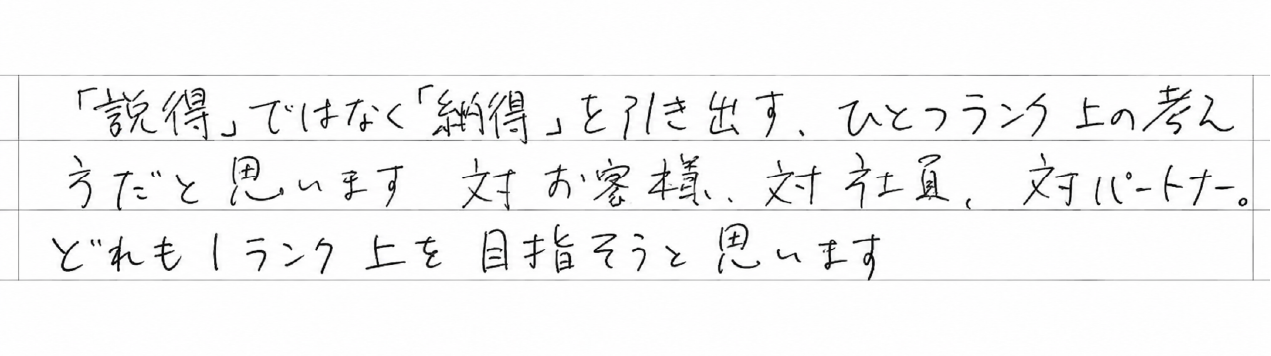 「説得」ではなく「納得」を引き出す、ひとつランク上の考え
方だと思います 対お客様、対社員、対パートナー。
どれも1ランク上を目指そうと思います